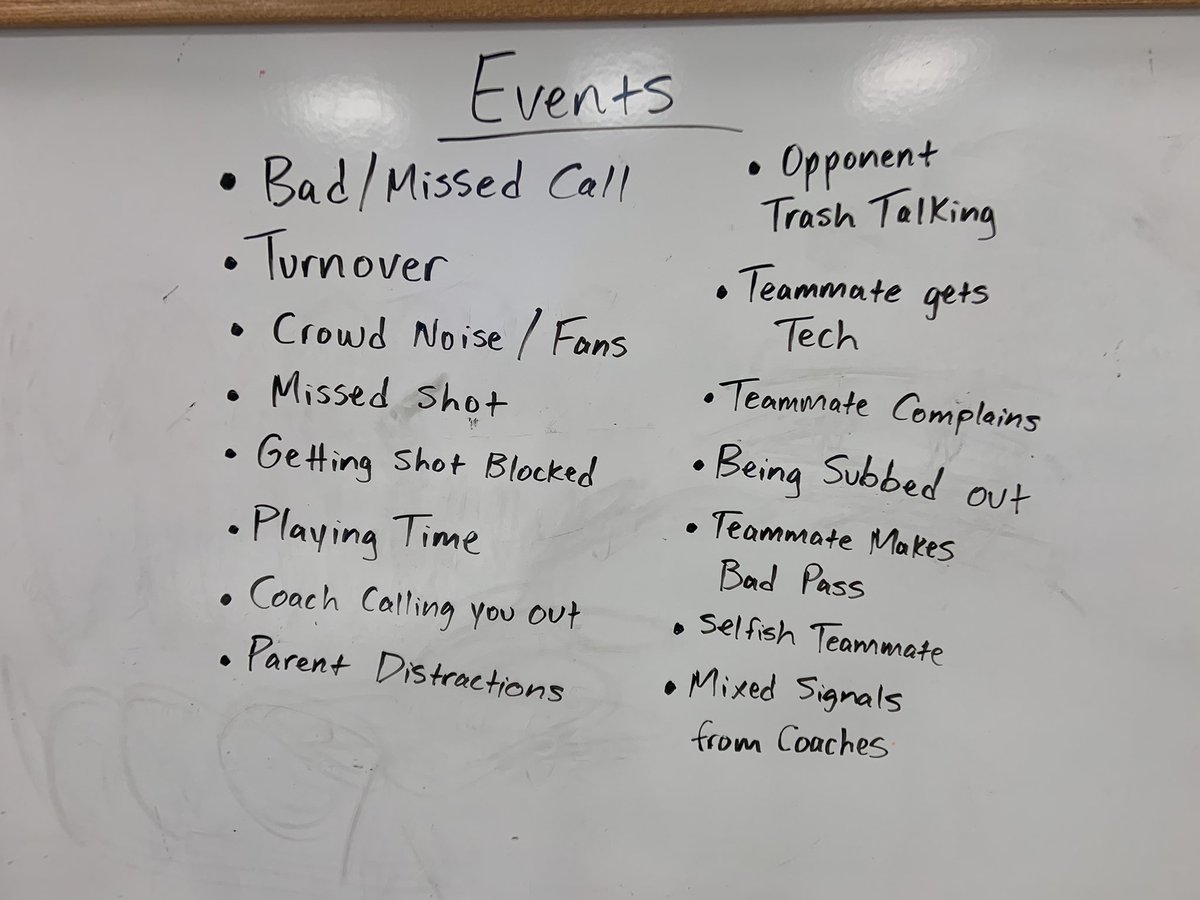 Events
• Bad/Missed Call
• Turnover
• Crowd Noise / Fans
• Missed Shot
• Getting Shot Blocked
• Playing Time
• Coach Calling you out
• Parent Distractions
• Opponent
Trash Talking
• Teammate gets
Tech
• Teammate Complains
• Being Subbed out
• Teammate Makes
Bad Pass
• Selfish Teammate
• Mixed Signals
from Coaches